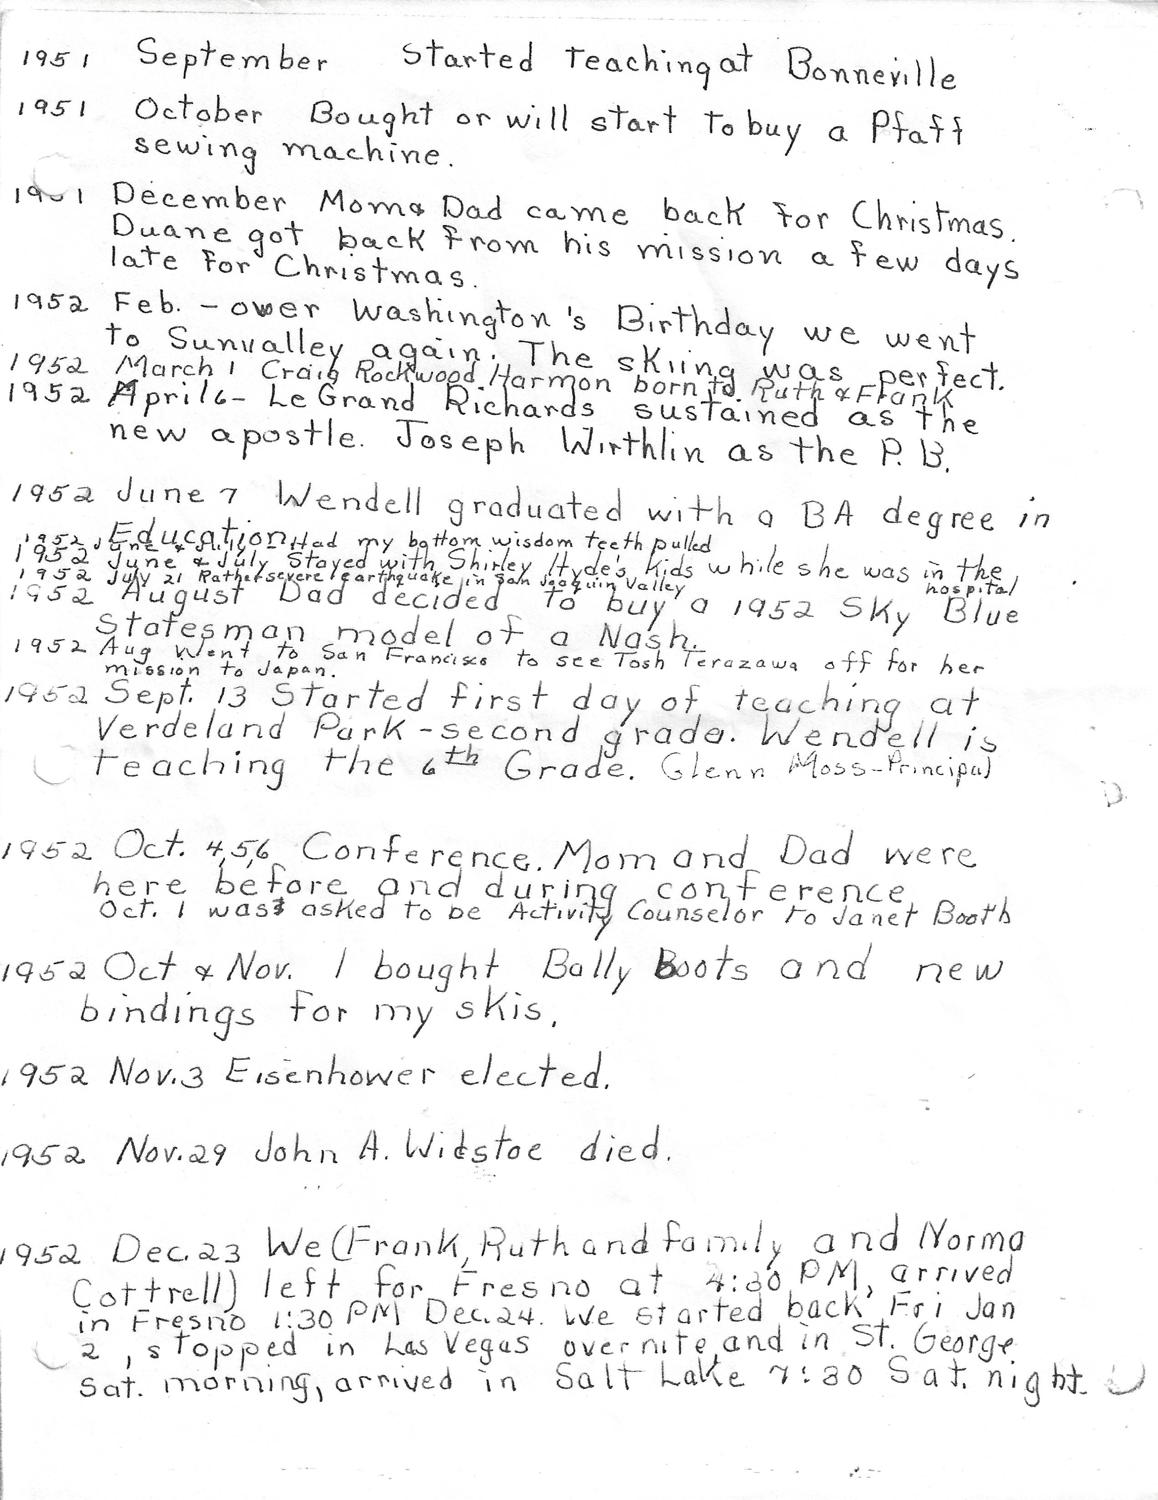 1951 September Started Teaching at Bonneville
1951 October Bought or will start to buy a Pfaff
sewing machine.
1951 December Mom & Dad came back for Christmas.
Duane got back from his mission a few days
late for Christmas.
1952 Feb. - over Washington's Birthday we went
to Sunvalley again. The skiing was perfect.
1952 March 1 Craig Rockwood Harmon born to Ruth & Frank
1952 April 6 - LeGrand Richards sustained as the
new apostle. Joseph Wirthlin as the P. B.
1952 June 7 Wendell graduated with a BA degree in
Education
1952 June & July - Had my bottom wisdom teeth pulled
1952 June & July Stayed with Shirley Hyde's kids while she was in the
hospital
1952 July 21 Rather severe earthquake in San Joaquin Valley
1952 August Dad decided to buy a 1952 Sky Blue
Statesman model of a Nash.
1952 Aug Went to San Francisco to see Tosh Terazawa off for her
mission to Japan.
1952 Sept. 13 Started first day of teaching at
Verdeland Park - second grade. Wendell is
teaching the 6th Grade. Glenn Moss - Principal
1952 Oct. 4,5,6 Conference. Mom and Dad were
here before and during conference
Oct. I was asked to be Activity Counselor to Janet Booth
1952 Oct & Nov. I bought Bally Boots and new
bindings for my skis.
1952 Nov. 3 Eisenhower elected.
1952 Nov. 29 John A. Widstoe died.
1952 Dec. 23 We (Frank, Ruth and family and Norma
Cottrell) left for Fresno at 4:30 PM, arrived
in Fresno 1:30 PM Dec. 24. We started back Fri Jan
2, stopped in Las Vegas over nite, and in St. George
Sat. morning, arrived in Salt Lake 7:30 Sat. night.